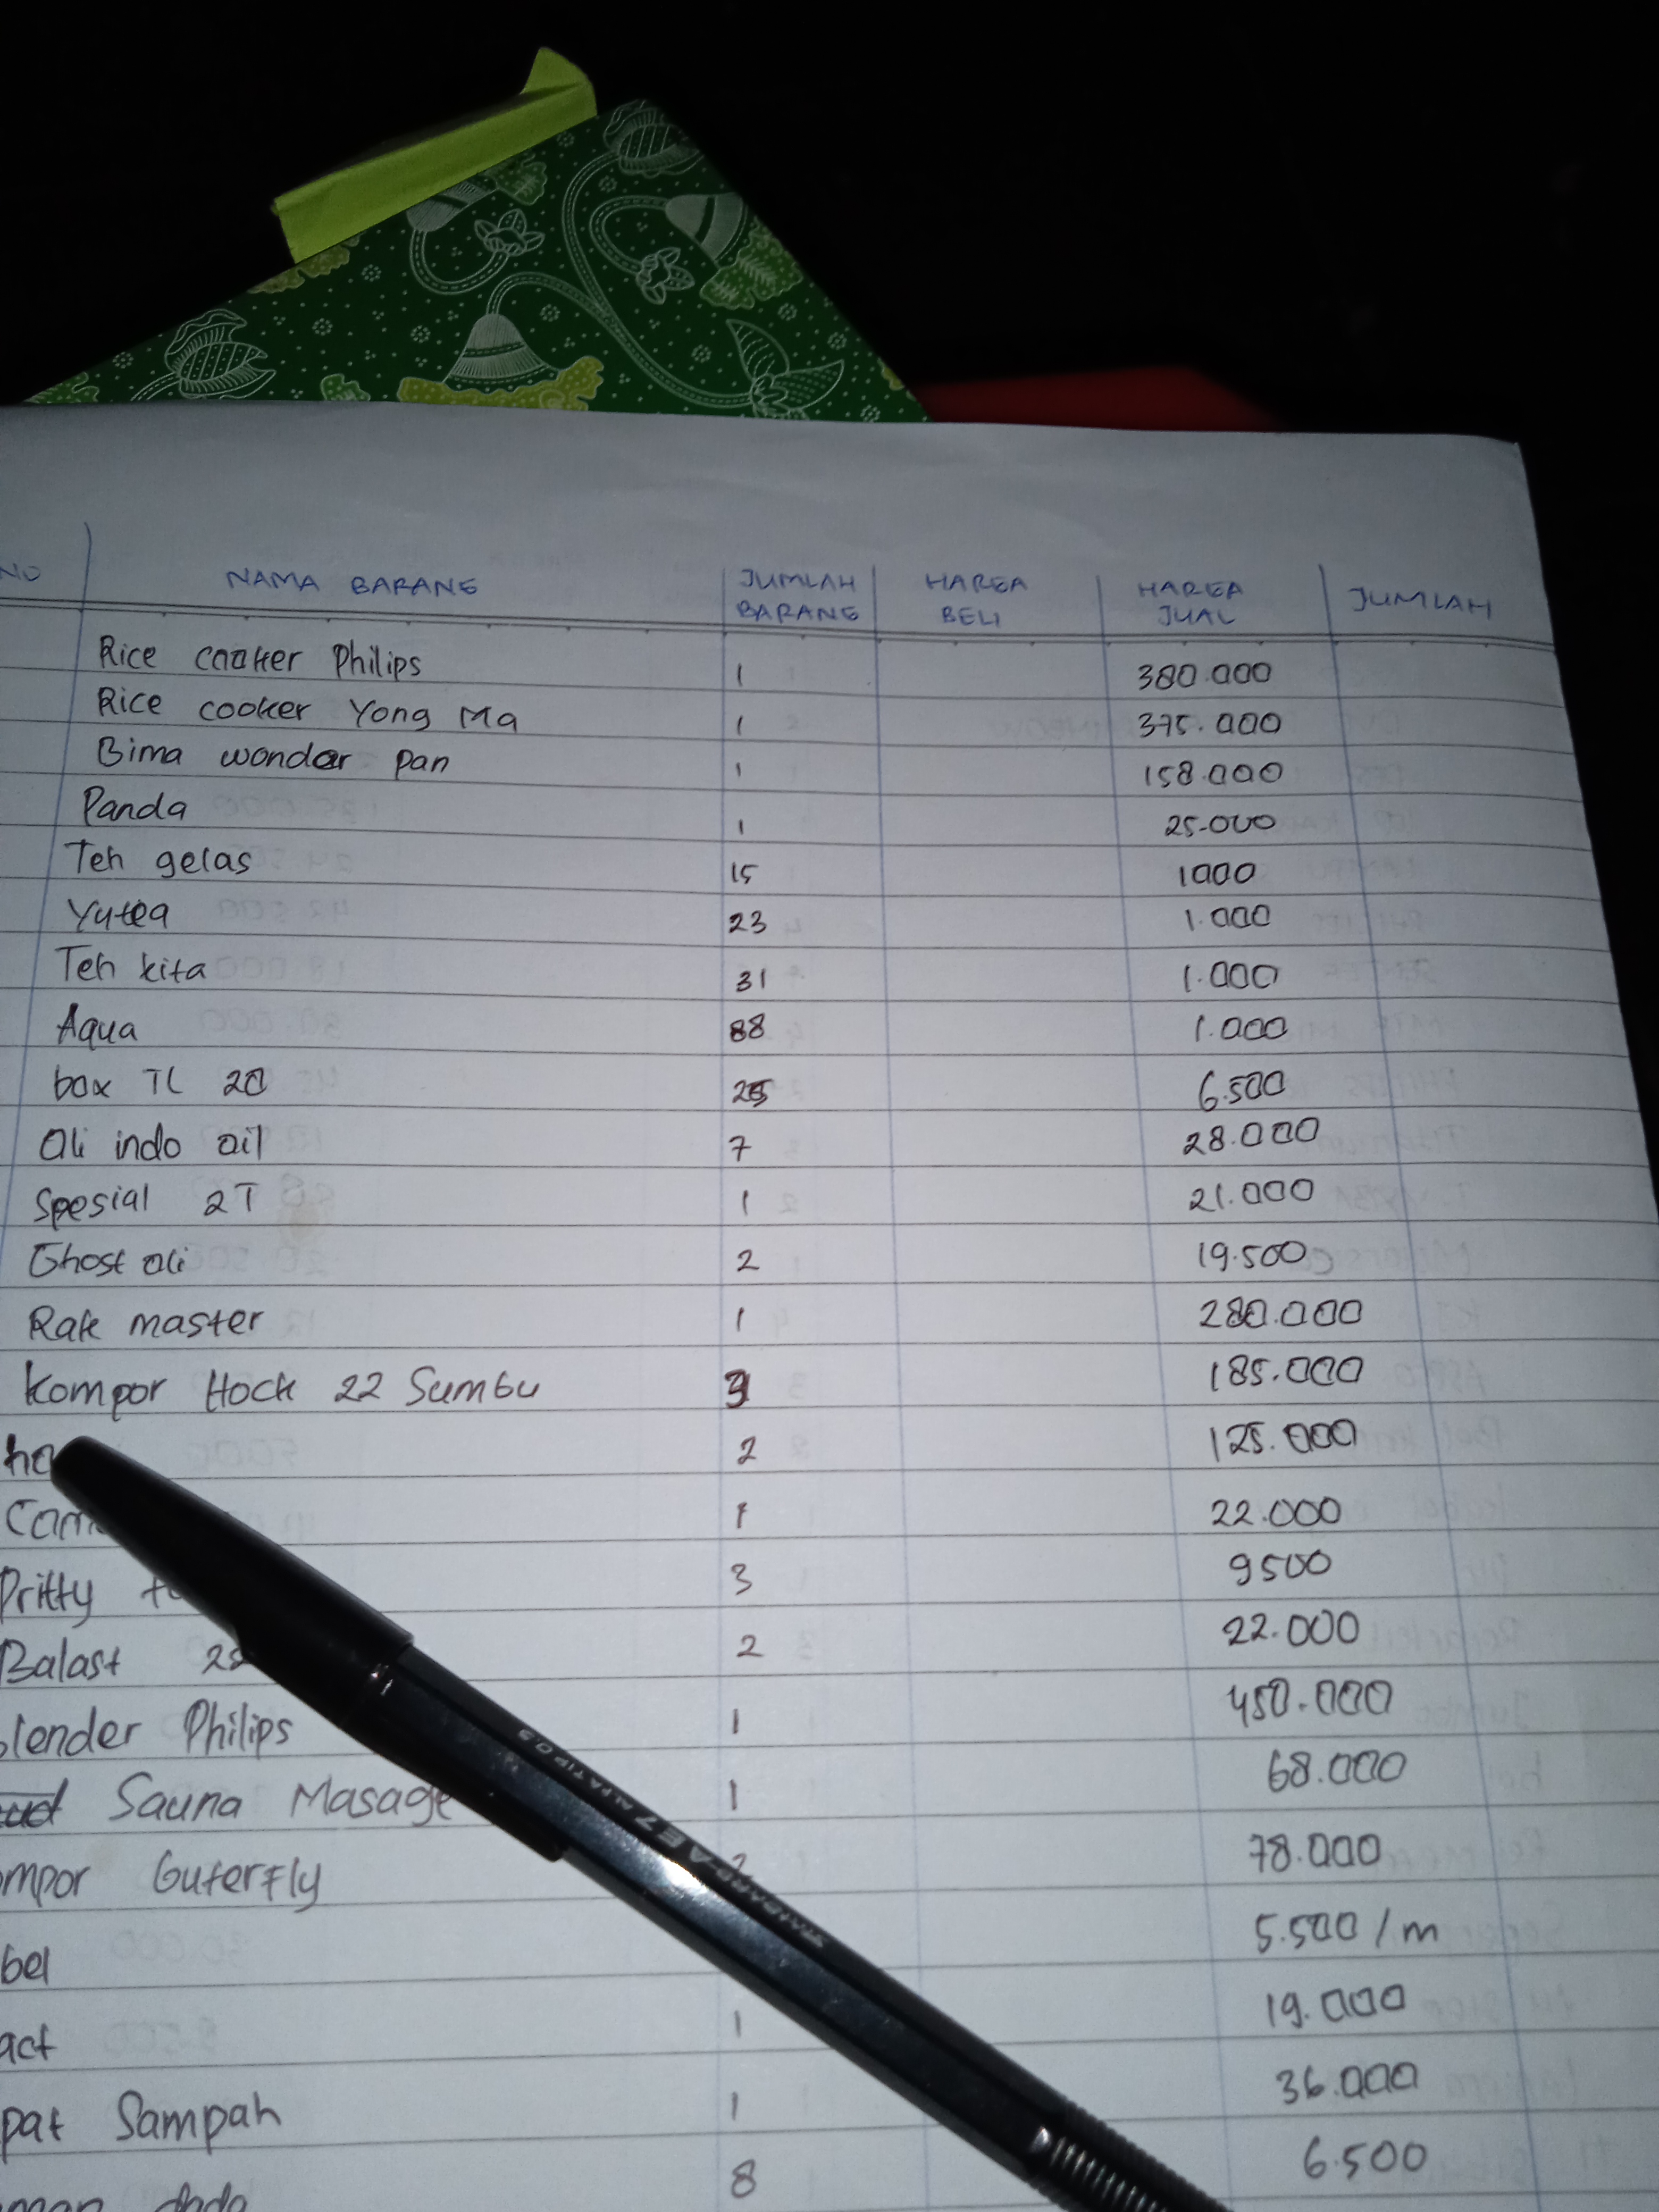 NO NAMA BARANG JUMLAH BARANG HARGA BELI HARGA JUAL JUMLAH
Rice cooker Philips 1 380.000
Rice cooker Yong Ma 1 375.000
Bima wonder pan 1 158.000
Panda 1 25.000
Teh gelas 15 1000
Yutea 23 1.000
Teh kita 31 1.000
Aqua 88 1.000
box TL 20 6.500
Oli indo oil 7 28.000
Spesial 2T 1 21.000
Ghost oli 2 19.500
Rak master 1 280.000
Kompor Hock 22 Sumbu 185.000
ho 2 125.000
Com 1 22.000
Pritty 3 9500
Balast 2 22.000
lender Philips 1 450.000
Sauna Masage 1 68.000
mpor Guterfly 2 78.000
bel 5.500/m
act 1 19.000
pat Sampah 1 36.000
8 6.500
STANDARD-AE7 ALFATIP 0.5